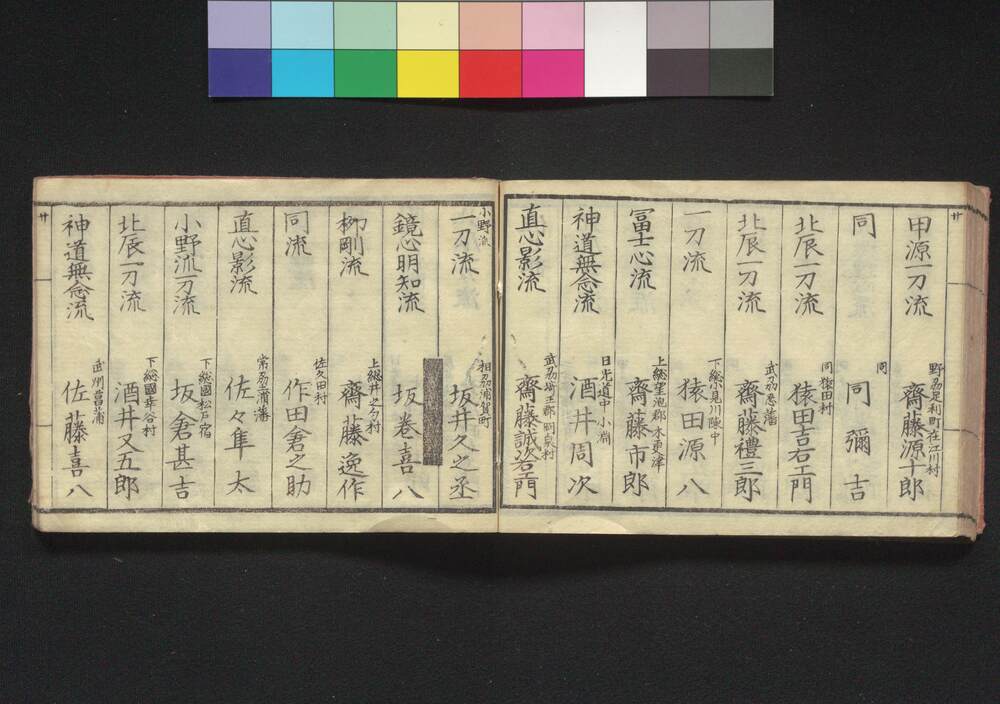 廿
甲源一刀流
野刕足利町在江川村
齋藤源十郎
同
同
同彌吉
北辰一刀流
同猿田村
猿田吉右エ門
北辰一刀流
武刕忍藩
齋藤禮三郎
一刀流
下総小見川陣中
猿田源八
冨士心流
上総望陀郡木更津
齋藤市郎
神道無念流
日光道中小渕
酒井周次
直心影流
武刕埼玉郡
齋藤誠次右エ門
小野流
一刀流
相刕浦賀町
坂井久之丞
鏡心明知流
坂巻喜八
柳剛流
上総井之内村
齋藤逸作
同流
佐久田村
作田倉之助
直心影流
常刕土浦藩
佐々隼太
小野流一刀流
下総國松戸宿
坂倉甚吉
北辰一刀流
下総國幸谷村
酒井又五郎
神道無念流
武州菖蒲
佐藤喜八
廿